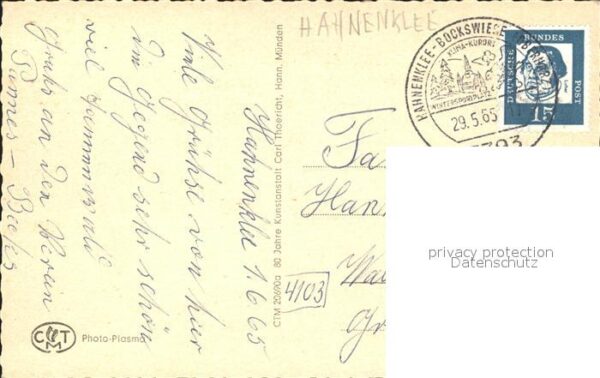 HAHNENKLEE
HAHNENKLEE-BOCKSWIESE
KLIMA-KURORT
WINTERSPORTPLATZ
29.5.65
3393
DEUTSCHE BUNDESPOST
15
Hahnenklee 1.6.65
Viele Grüße von hier
die Gegend sehr schön
viel
Gruß an den Verein
CTM 20690a 80 Jahre Kunstanstalt Carl Thoericht, Hann. Münden
4103
Fa
Han
privacy protection
Datenschutz
CTM
Photo-Plasma